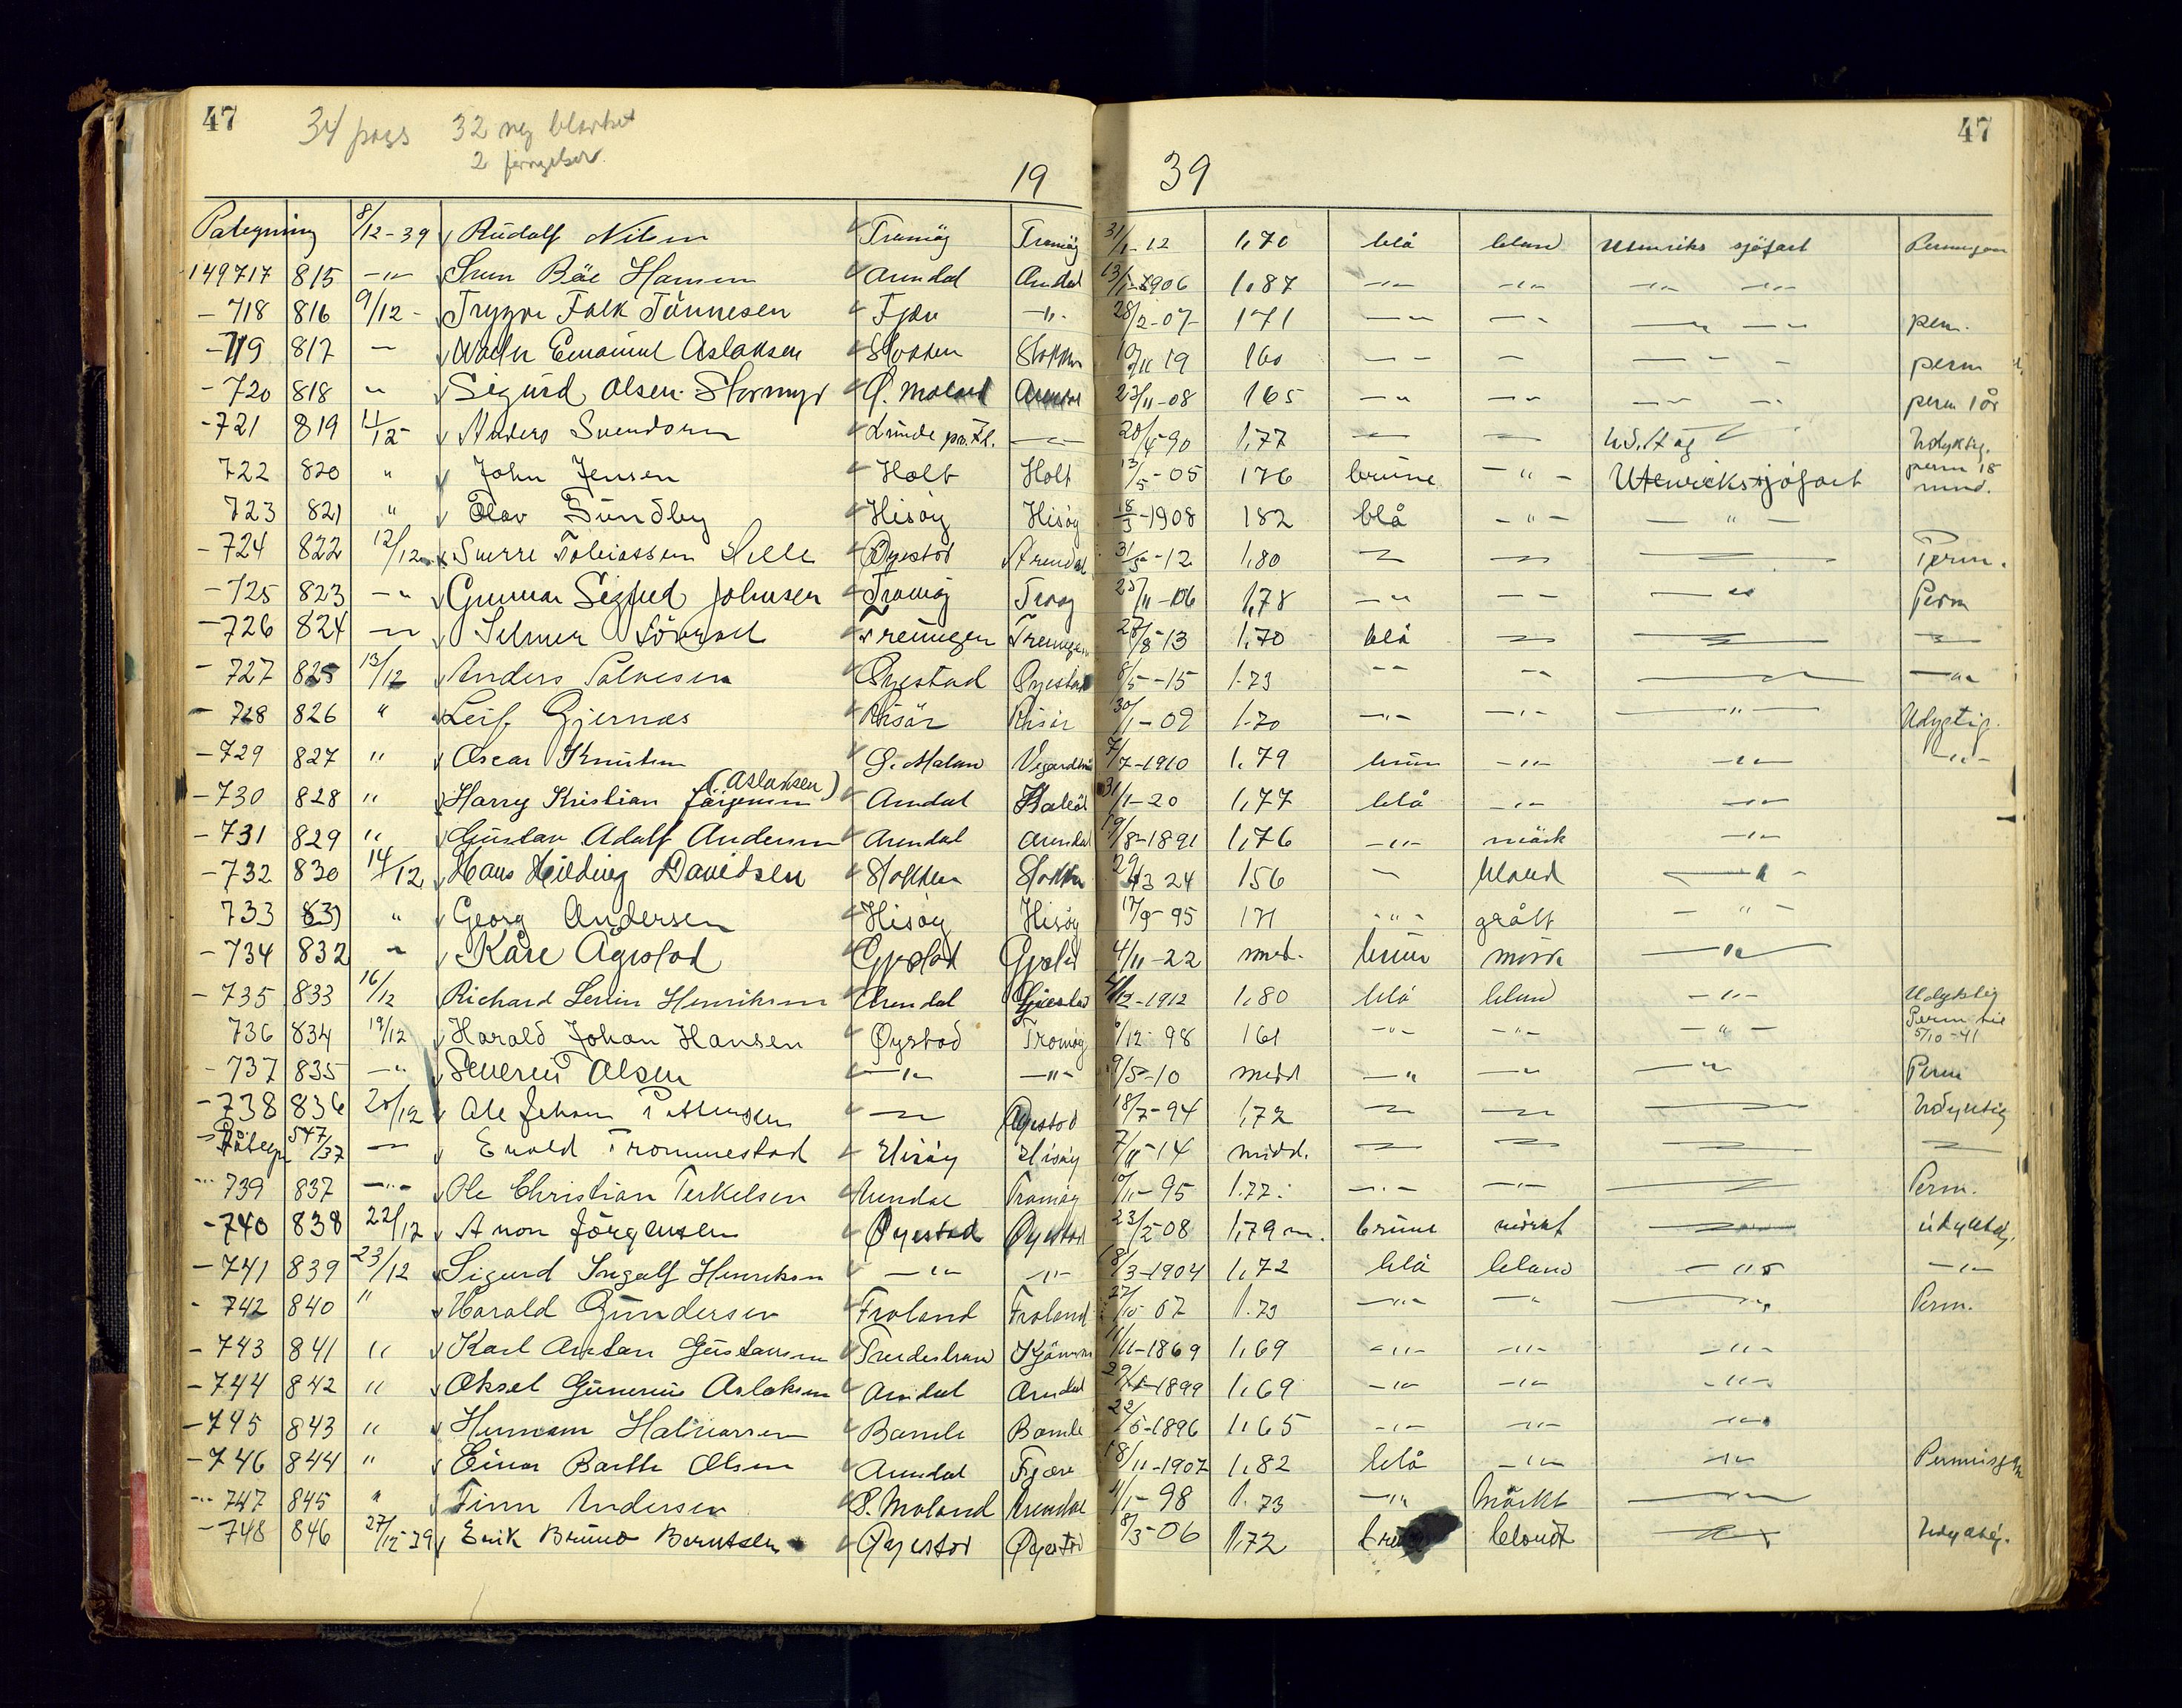 47 34 pass 32 ny blanket 47
2 fornyelser
19 39
Pategning 8/12-39 Rudolf Nilsen Tromöy Tromöy 31/1-12 1,70 blå blond Utenriks sjöfart
149717 815 -"- Boe Hansen Arendal Arendal 13/1-1906 1,87 -"- -"- -"- -"-
-718 816 9/12- Trygve Falk Tönnesen Fjære -"- 28/2-07 171 -"- -"- -"- perm.
-719 817 - Emanuel Aslaksen Stokken Stokken 10/11 19 160 -"- - -"- perm
-720 818 " Sigurd Olsen Stormyr Ö. Moland Arendal 23/11-08 165 -"- -"- -"- perm 1 år
-721 819 11/12- Anders Svendsen Lunde -"- 20/4-90 1,77 -"- -"- Udyktig.
722 820 " John Jensen Holt Holt 13/5-05 176 brune -"- Utenrikssjöfart perm 18 mnd.
723 821 " Olav Sundby Hisöy Hisöy 18/3-1908 182 blå -"- -"-
-724 822 12/12 Sverre Tobiassen Helle Öyestad Arendal 31/5-12 1,80 -"- -"- -"- Perm.
-725 823 -"- Gunnar Sigfred Johnsen Tromöy Tromöy 25/11-06 1,78 -"- -"- -"- Perm
-726 824 -"- Selmer Treungen Treungen 27/8-13 1,70 blå -"- -"- -"-
-727 825 13/12 Anders Salvesen Öyestad Öyestad 8/5-15 1.73 -"- -"- -"- -"-
-728 826 " Leif Gjernes Risör Risör 30/1-09 1.70 -"- -"- -"- Udygtig.
-729 827 " Oscar Knutsen Vegårdshei 7/7-1910 1.79 brun -"- -"- -"-
(Aslaksen)
-730 828 " Harry Kristian Jörgensen Arendal 31/1-20 1,77 blå -"- -"-
-731 829 " Gustav Adolf Andersen Arendal Arendal 19/8-1891 1,76 -"- mörk -"-
-732 830 14/12 Hans Hilding Davidsen Stokken Stokken 29/3 24 156 - blond -"-
733 831 " Georg Andersen Hisöy Hisöy 17/9-95 171 -"- grått -"-
-734 832 " Kåre Ågestad 4/11-22 med. brun mörk -"-
-735 833 16/12 Richard Henriksen Arendal 12-1912 1,80 blå blond -"- Udyktig
736 834 19/12 Harald Johan Hansen Öyestad Tromöy /12-98 161 -"- -"- -"- Perm til 5/10-41
-737 835 -"- Severin Olsen -"- -"- 9/5-10 midd -"- -"- -"- Perm
-738 836 20/12 Ole Johan Pettersen -"- Öyestad 18/7-94 1,72 -"- -"- -"- Udyktig
-Påtegn 547/37 -"- Evald Trommestad Hisöy Hisöy 7/11-14 midd. -"- -"- -"- -"-
-739 837 -"- Ole Christian Terkelsen Arendal Tromöy 10/11-95 1.77. -"- -"- -"- Perm.
-740 838 22/12 Aron Jörgensen Öyestad Öyestad 23/2-08 1,79 m. brune mörkt -"- udyktig.
-741 839 23/12 Sigurd Ingolf Henriksen -"- -"- 18/3-1904 1,72 blå blond -"- -"-
-742 840 " Harald Gundersen Froland Froland 27/10-07 1.73 -"- -"- -"- Perm.
-743 841 " Karl Anton Gustavsen 11/11-1869 1,69 -"- -"- -"-
-744 842 " Aksel Gunerius Aslaksen Arendal Arendal -1899 1,69 -"- -"- -"-
-745 843 " Hermann Halvorsen Bamle Bamle 22/5-1896 1,65 -"- -"- -"-
-746 844 " Einar Barth Olsen Arendal Fjære 18/11-1907 1,82 blå -"- -"-
-747 845 " Finn Andersen Ö. Moland Arendal 11/1-98 1.73 -"- Mörkt -"-
-748 846 27/12-39 Erik Bruno Berntsen Öyestad Öyestad 8/3-06 1,72 blondt -"- Udyktig.